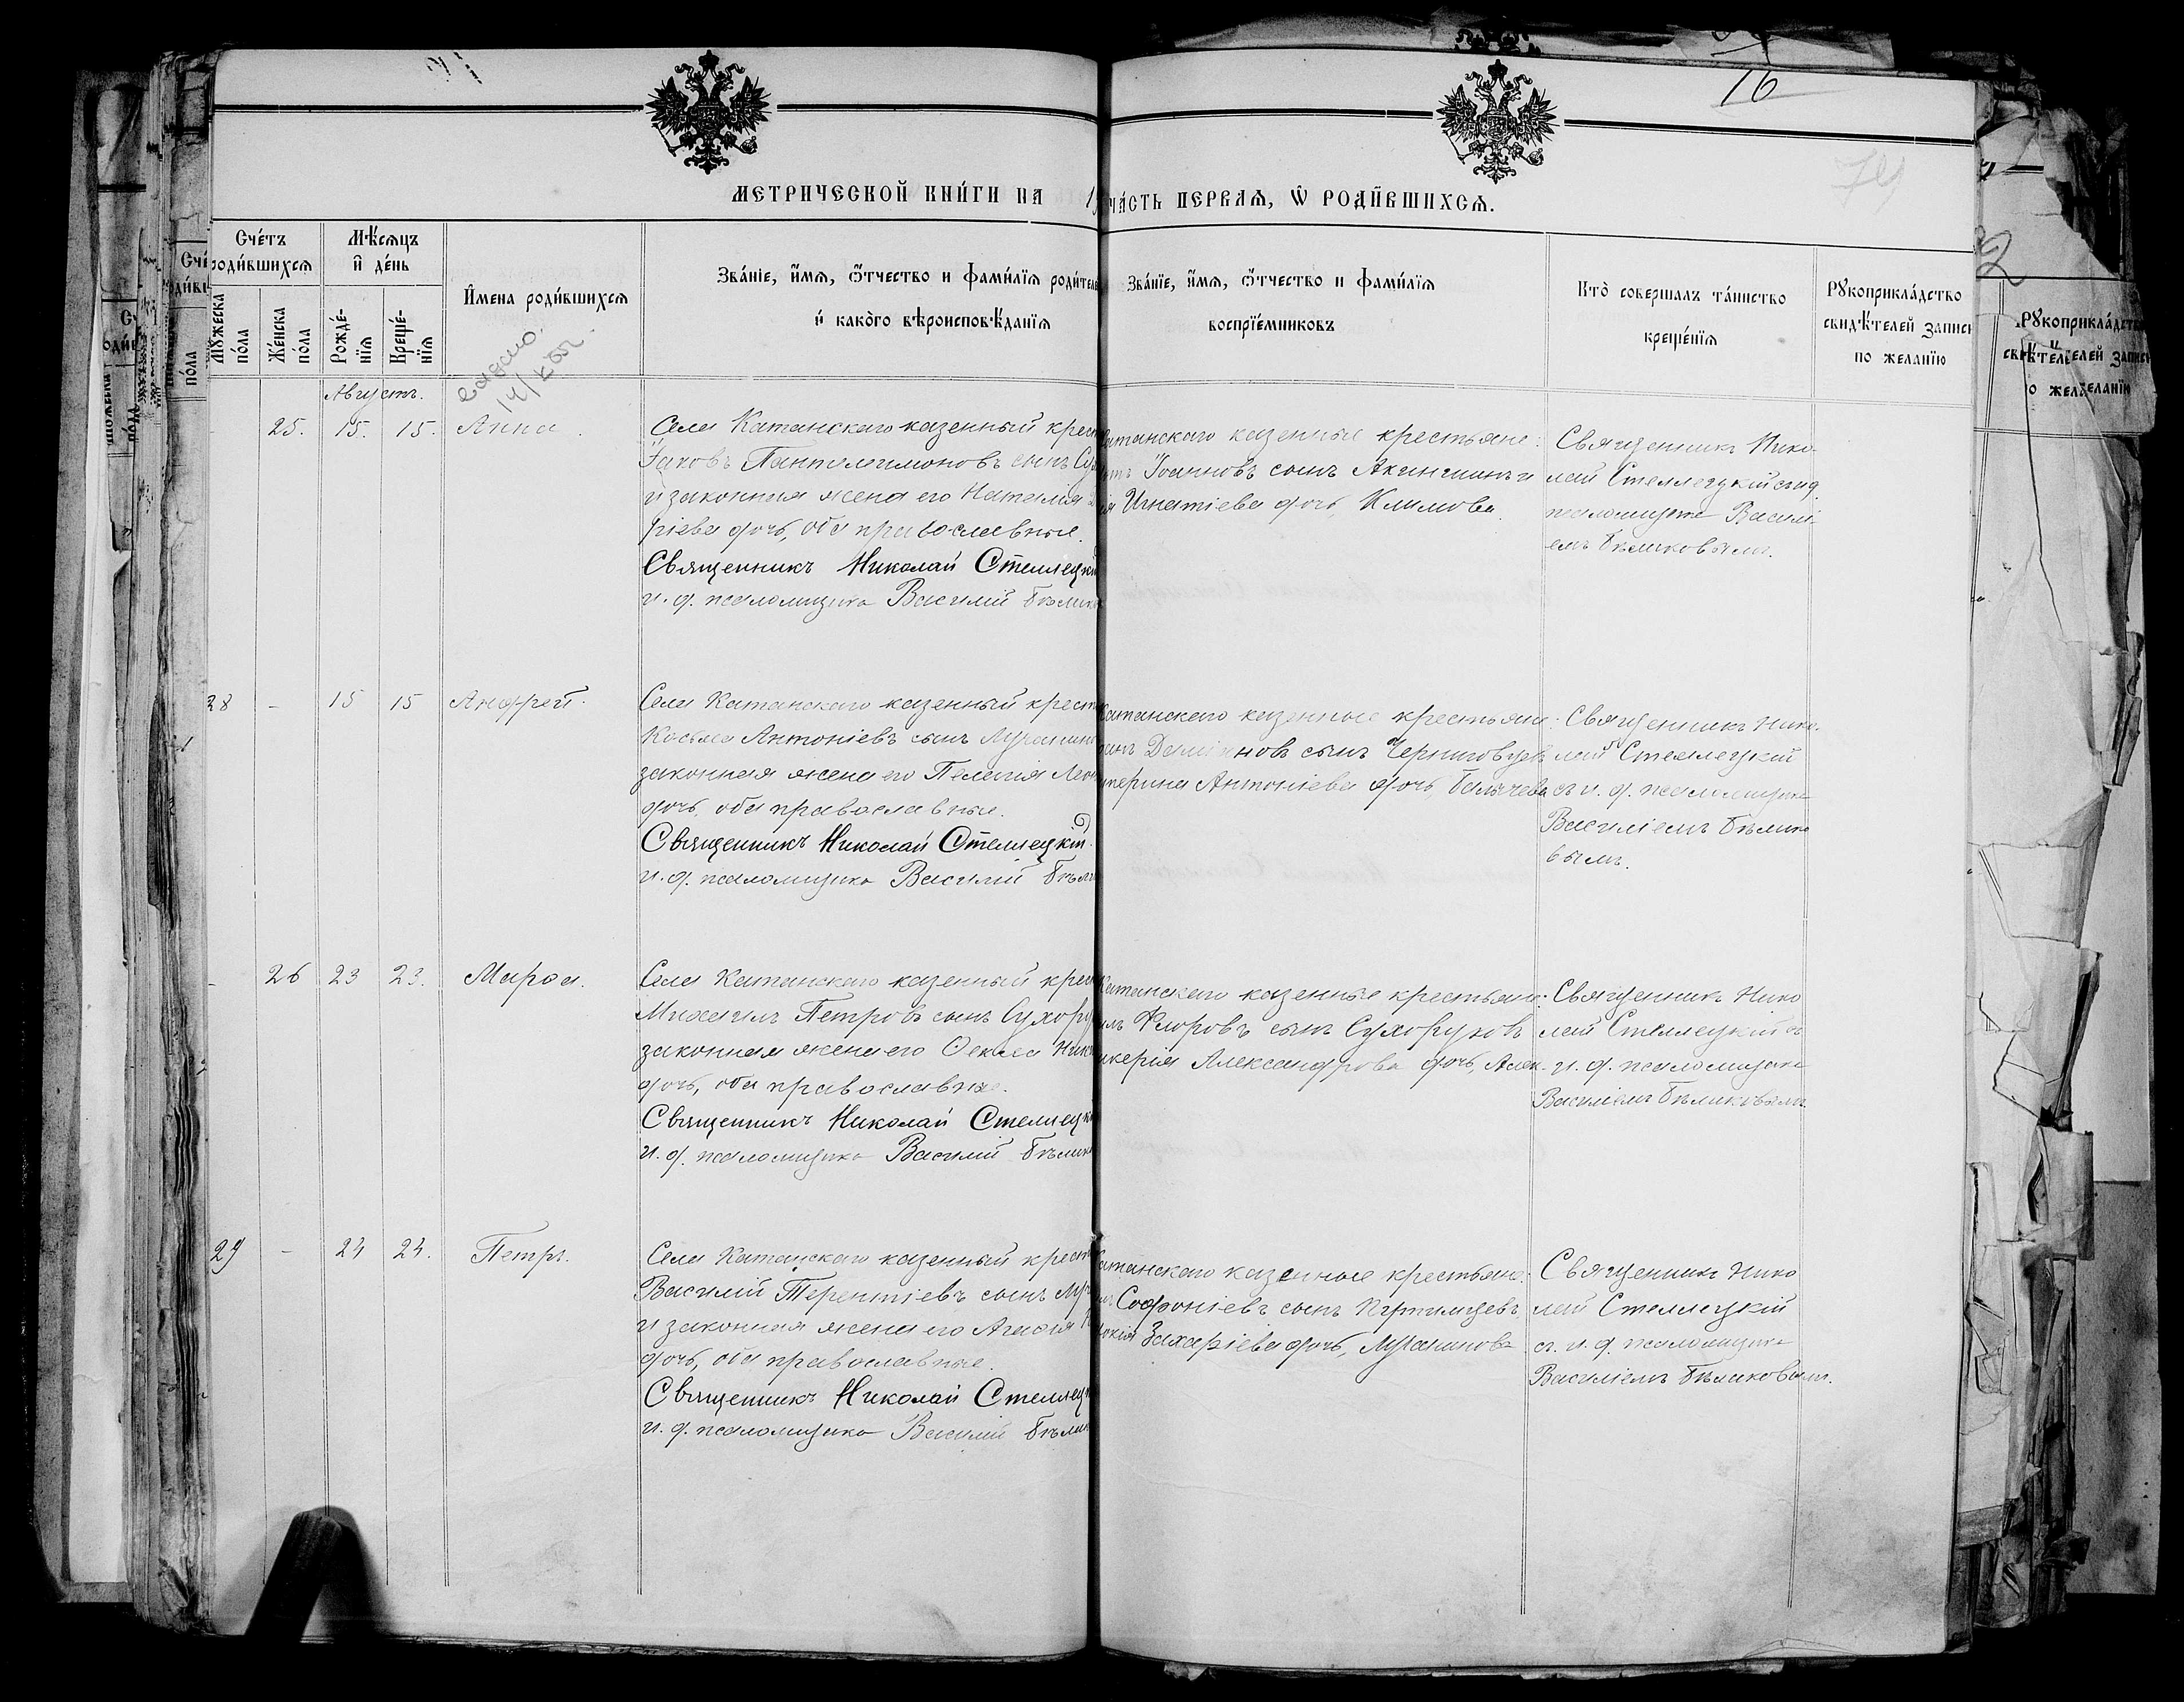 16
74
МЕТРИЧЕСКОЙ КНИ́ГИ НА 1
ЧА́СТЬ ПЕРВАѦ, Ѡ҆ РОДИ́ВШИХСѦ.
Сче́тъ
роди́вшихсѧ
Мѣ́сѧцъ
и҆ де́нь
И҆мена роди́вшихсѧ
Зва́нїе, и҆́мѧ, ѻ҆́тчество и фами́лїѧ роди́теле
и҆ како́го вѣроисповѣ́данїѧ
Мꙋ́жеска
по́ла
Же́нска
по́ла
Рожде́-
нїѧ
Креще́-
нїѧ
Зва́нїе, и҆́мѧ, ѻ҆́тчество и фами́лїѧ
воспрїе́мниковъ
Кто̀ совершалъ та́инство
креще́нїѧ
Рꙋкоприкла́дство
свидѣ́телей записи
по жела́нїю
Августъ.
25. 15. 15. Анна.
Села Катанскаго казенный крест
Іаковъ Пантелимоновъ сынъ Сух
и законная жена его Наталія
ріева дочь, оба православные.
Священникъ Николай Стеллецкій
и. д. псаломщика Василій Бѣлик
Катанскаго казенные крестьяне:
Іоанновъ сынъ Акиншинъ и
Игнатіева дочь, Климова.
Священникъ Нико-
лай Стеллецкій съ и д.
псаломщика Василі-
емъ Бѣликовымъ.
28 - 15 15 Андрей.
Села Катанскаго казенный крест
Косьма Антоніевъ сынъ Лучанино
законная жена его Пелагія Леон
дочь, оба православные.
Священникъ Николай Стеллецкій.
и. д. псаломщика Василій Бѣли
Катанскаго казенные крестьяне:
Деміановъ сынъ Черниговцев
терина Антоніева дочь Балычева
Священникъ Нико-
лай Стеллецкій
съ и. д. псаломщика
Василіемъ Бѣлико
вымъ.
- 26 23 23. Марѳа.
Села Катанскаго казенный крест
Михаилъ Петровъ сынъ Сухору
законная жена его Ѳекла Ник
дочь, оба православные.
Священникъ Николай Стеллецк
и. д. псаломщика Василій Бѣлик
Катанскаго казенные крестьяне:
илъ Флоровъ сынъ Сухоруковъ
икерія Александрова дочь, Алек.
Священникъ Нико
лай Стеллецкій съ
и. д. псаломщика
Василіемъ Бѣликовымъ.
29 - 24 24. Петръ.
Села Катанскаго казенный крест
Василій Терентіевъ сынъ Луч
и законная жена его Агаѳія
дочь, оба православные.
Священникъ Николай Стеллец
и. д. псаломщика Василій Бѣлик
Катанскаго казенные крестьяне:
Софроніевъ сынъ
Захаріева дочь, Лучанинова
Священникъ Нико
лай Стеллецкій
съ и. д. псаломщика
Василіемъ Бѣликовымъ.